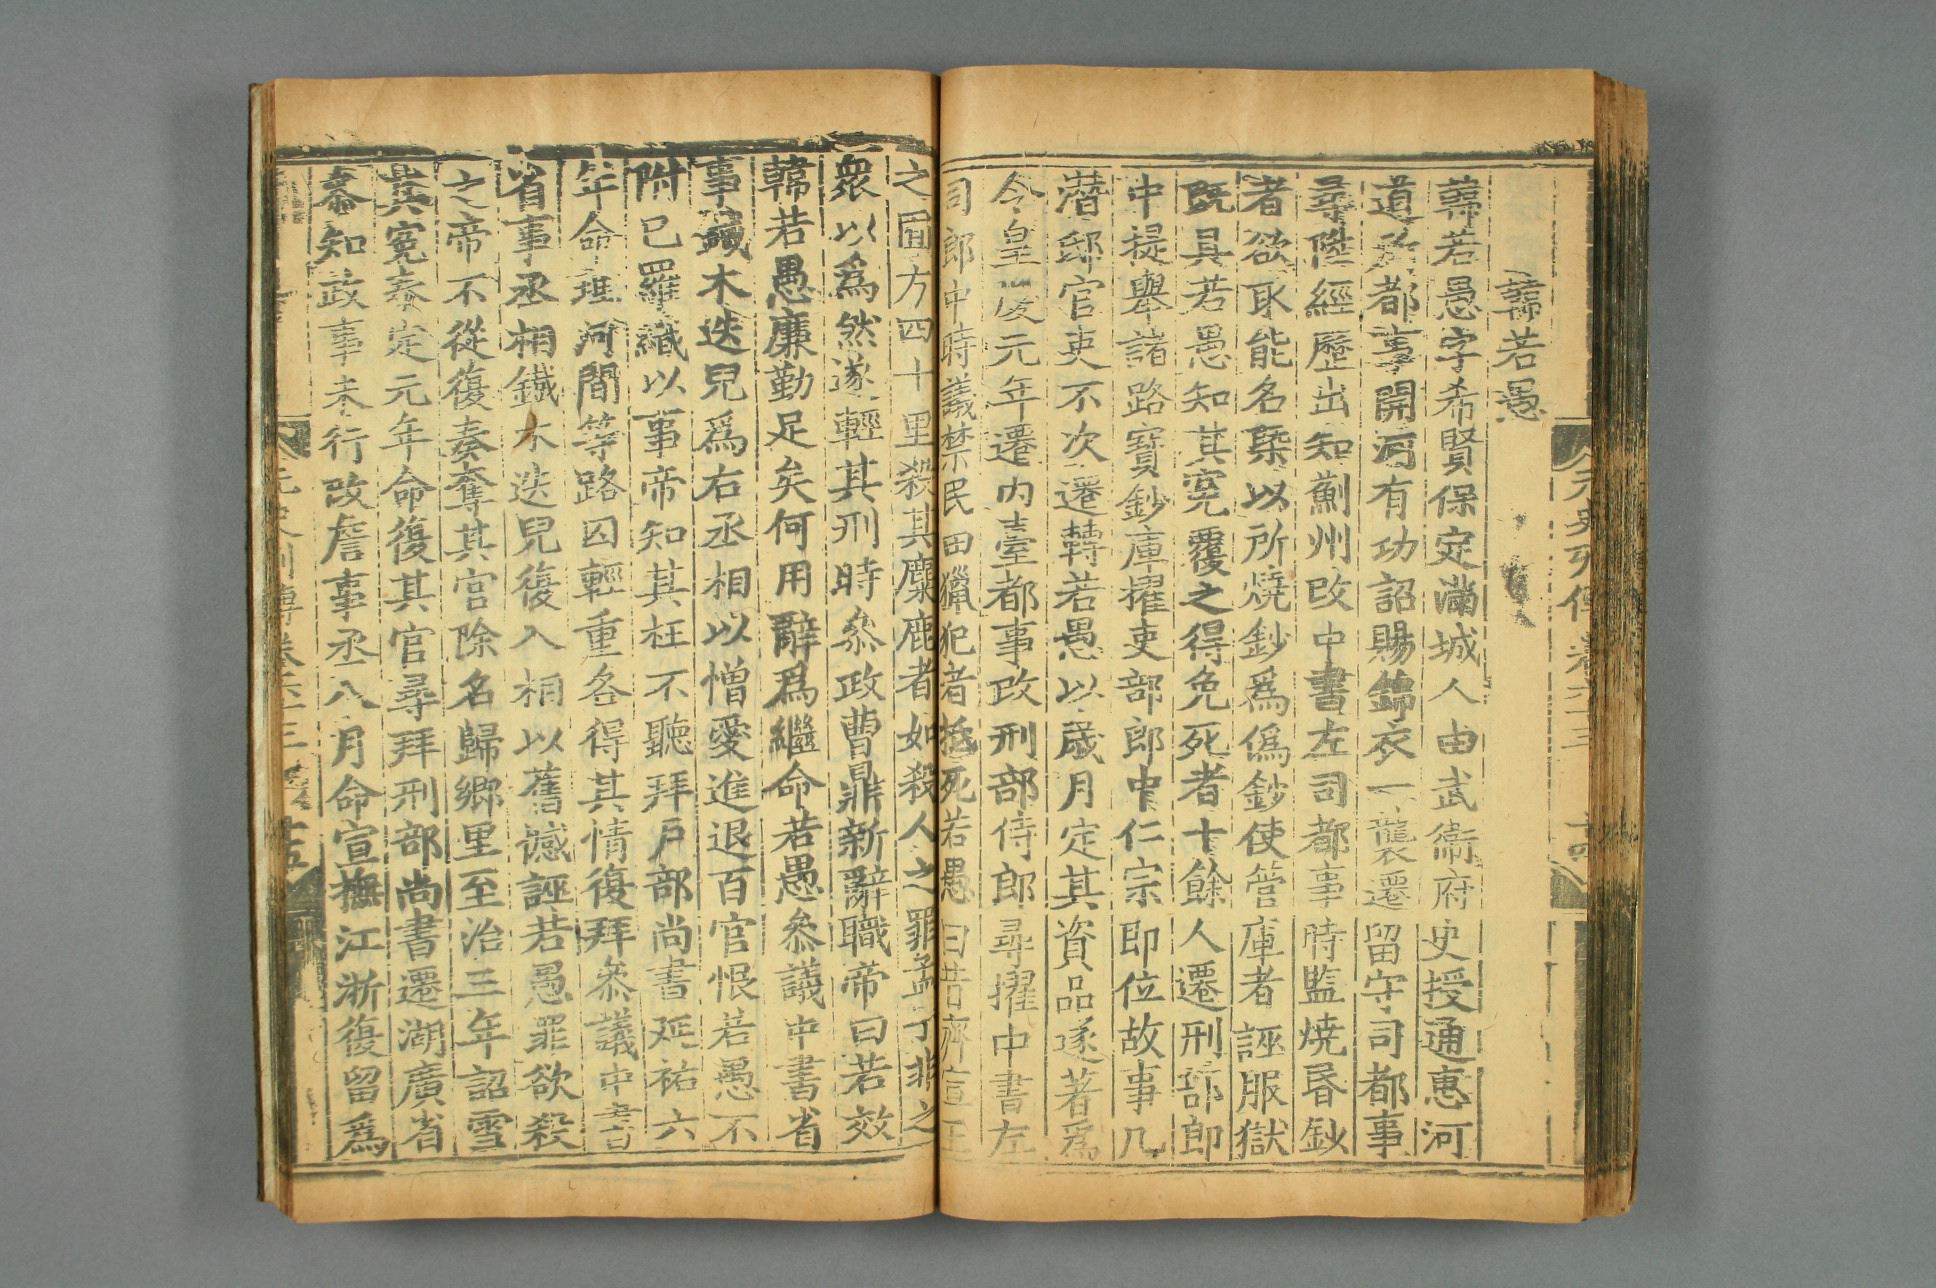 元史列傳卷六十三 十四
韓若愚
韓若愚字希賢保定滿城人由武衛府史授通惠河
道都事開河有功詔賜錦衣一襲遷留守司都事
尋陞經歷出知薊州改中書左司都事時監燒昏鈔
者欲取能名槩以所燒鈔爲僞鈔使管庫者誣服獄
既具若愚知其寃覆之得免死者十餘人遷刑部郎
中提舉諸路寳鈔庫擢吏部郎中仁宗即位故事凡
潛邸官吏不次遷轉若愚以歲月定其資品遂著爲
令皇慶元年遷内臺都事改刑部侍郎尋擢中書左
司郎中時議禁民田獵犯者抵死若愚曰昔齊宣王
之囿方四十里殺其麋鹿者如殺人之罪孟子非之
衆以爲然遂輕其刑時叅政曹鼎新辭職帝曰若效
韓若愚廉勤足矣何用辭爲繼命若愚叅議中書省
事鐵木迭兒爲右丞相以憎愛進退百官恨若愚不
附已羅織以事帝知其枉不聽拜戶部尚書延祐六
年命理河間等路囚輕重各得其情復拜叅議中書
省事丞相鐵木迭兒復入相以舊憾誣若愚罪欲殺
之帝不從復奏奪其官除名歸鄉里至治三年詔雪
其寃泰定元年命復其官尋拜刑部尚書遷湖廣省
叅知政事未行改詹事丞八月命宣撫江浙復留爲
元史列傳卷六十三 十五